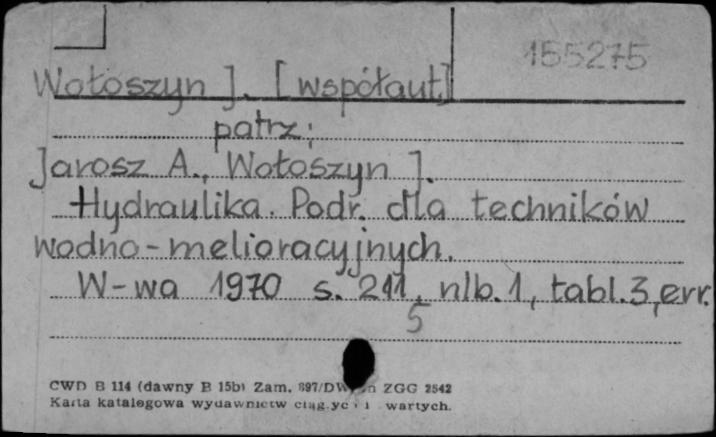 155275
Wołoszyn J. [współaut.]
patrz:
Jarosz A., Wołoszyn J.
Hydraulika. Podr. dla techników
wodno-melioracyjnych.
W-wa 1970 s. 211, nlb. 1, tabl. 3, err.
5
CWD B 114 (dawny B 15b) Zam. 897/DW ZGG 2542
Karta katalogowa wydawnictw i wartych.